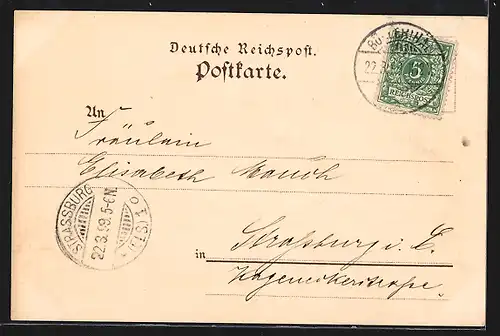 Deutsche Reichspost.
Postkarte.
5
REICHSPOST
An
Fräulein
Elisabeth Mauch
STRASSBURG
22.3.99. 5-6N.
(ELS) 1 o
in
Straßburg i. E.
Hagenauerstraße.